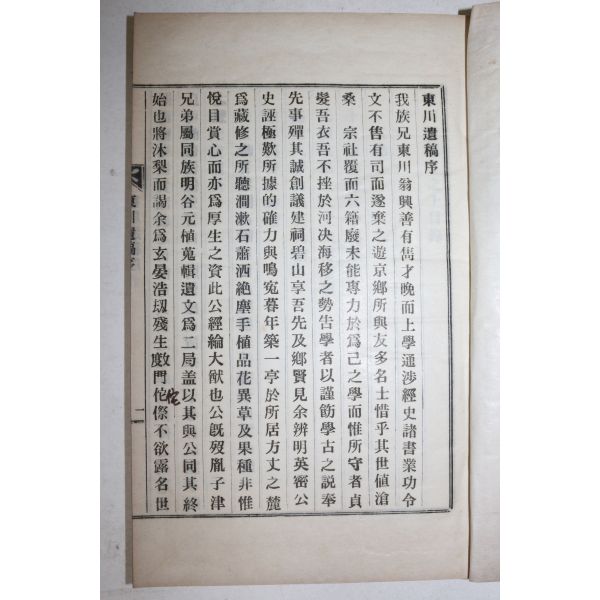 東川遺稿序
我族兄東川翁興善有雋才晚而上學通涉經史諸書業功令
文不售有司而遂棄之遊京鄉所與友多名士惜乎其世値滄
桑 宗社覆而六籍廢未能專力於爲己之學而惟所守者貞
髮吾衣吾不挫於河决海移之勢告學者以謹飭學古之説奉
先事殫其誠創議建祠碧山享吾先及鄉賢見余辨明英密公
史誣極歎所據的確力與鳴冤暮年築一亭於所居方丈之麓
爲藏修之所聽澗漱石蕭洒絶塵手植品花異草及果種非惟
悅目賞心而亦爲厚生之資此公經綸大猷也公旣歿胤子津
兄弟屬同族明谷元植蒐輯遺文爲二局盖以其與公同其終
始也將沐梨而謁余爲玄晏浩刼殘生斁門侘傺不欲露名世
東川遺稿序
一